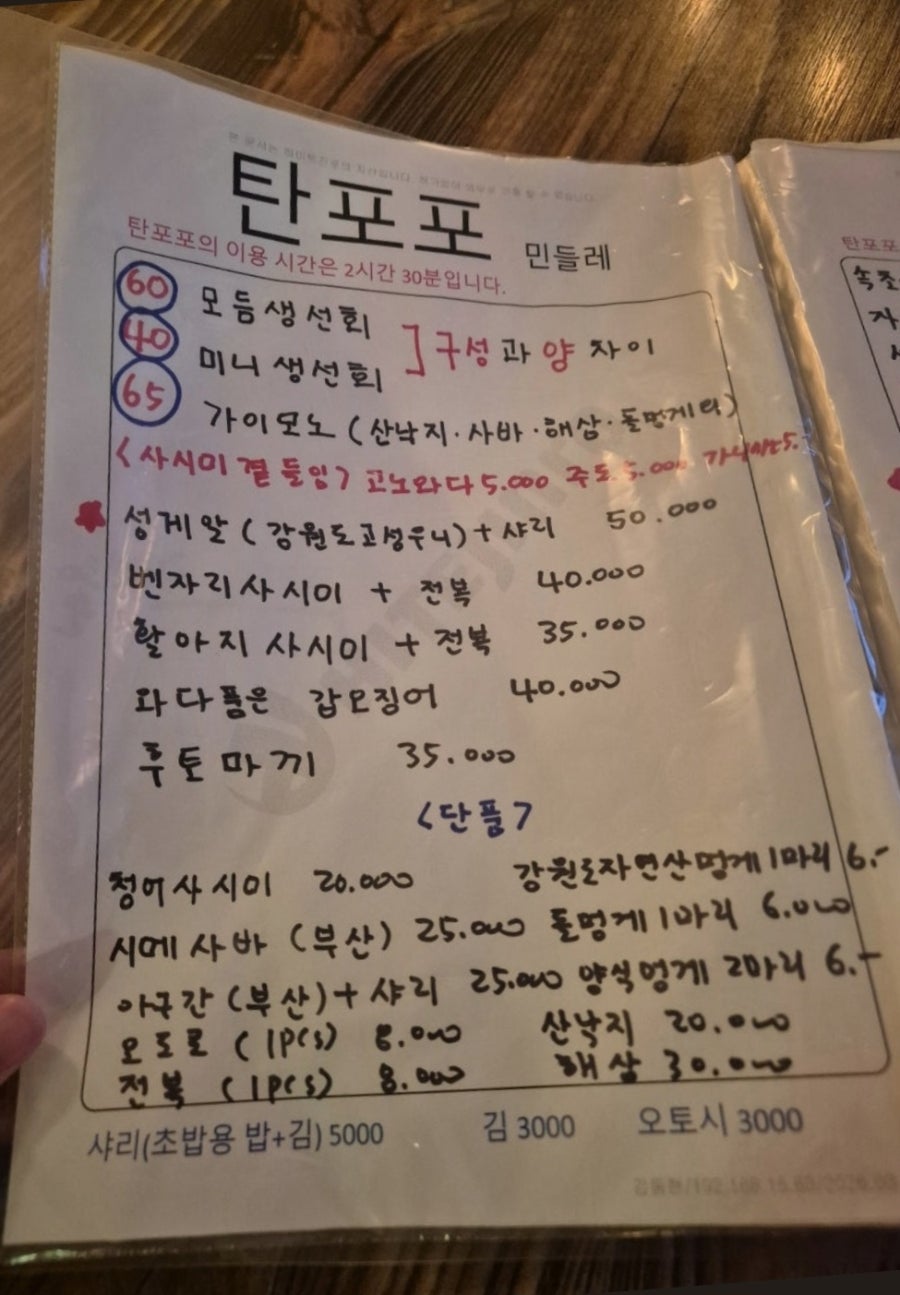 탄포포 민들레
탄포포의 이용 시간은 2시간 30분입니다.
60 모듬생선회
40 미니생선회 ] 구성과 양 차이
65 가이모노 (산낙지·사바·해삼·돌멍게 외)
<사시미 곁들임> 고노와다 5.000 주도 5.000
성게알 (강원도고성우니) + 샤리 50.000
벤자리사시미 + 전복 40.000
할아지 사시미 + 전복 35.000
와다품은 갑오징어 40.000
후토마끼 35.000
<단품>
청어사시미 20.000 강원도자연산멍게 1마리 6.-
시메사바 (부산) 25.000 돌멍게 1마리 6.000
아구간 (부산) + 샤리 25.000 양식멍게 2마리 6.-
오도로 (1pcs) 8.000 산낙지 20.000
전복 (1pcs) 8.000 해삼 30.000
샤리(초밥용 밥+김) 5000 김 3000 오토시 3000
탄포포